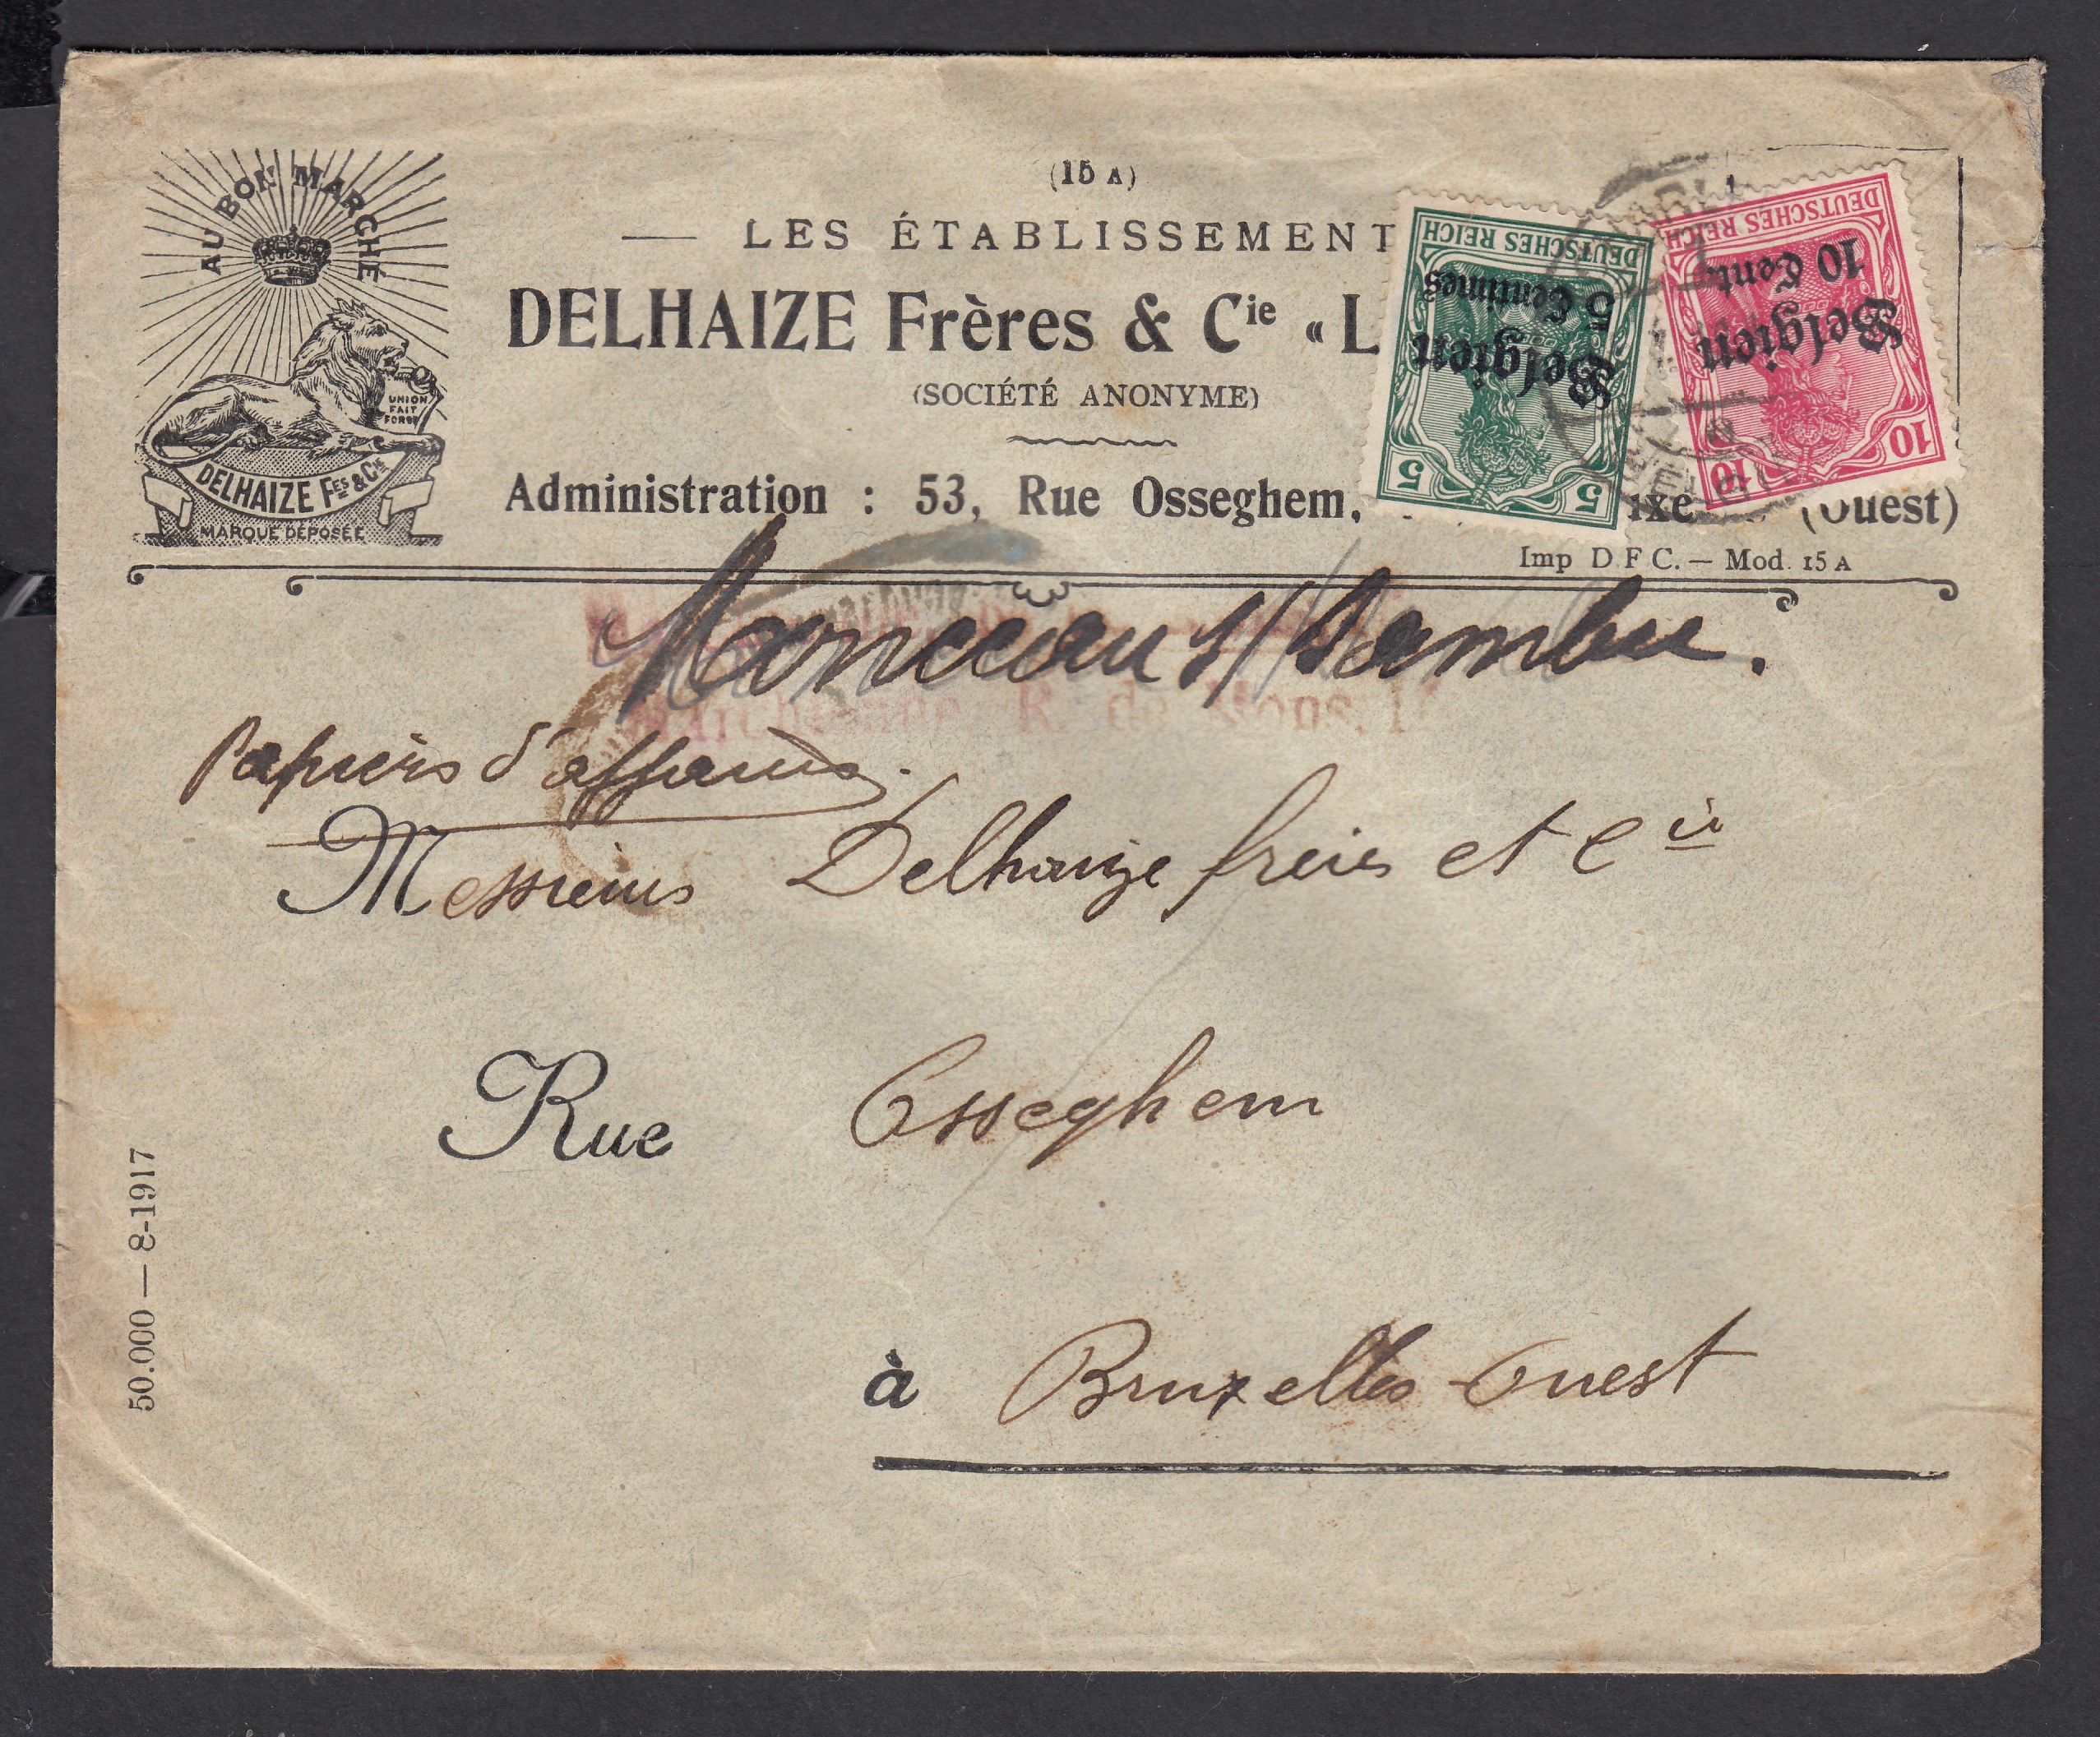 AU BON MARCHÉ
UNION
FAIT
FORCE
DELHAIZE FES & CIE
MARQUE DÉPOSÉE
(15 A)
— LES ÉTABLISSEMENT
DELHAIZE Frères & Cie « L
(SOCIÉTÉ ANONYME)
Administration : 53, Rue Osseghem, (Ouest)
Imp D F C. — Mod. 15 A
DEUTSCHES REICH
5 Centimes
Belgien
5 5
DEUTSCHES REICH
10 Cent.
Belgien
10 10
Monceau s/Sambre.
R. de Mons,
Papiers d'affaires.
Messieurs Delhaize frères et Cie
Rue Osseghem
à Bruxelles Ouest
50.000 — 8-1917